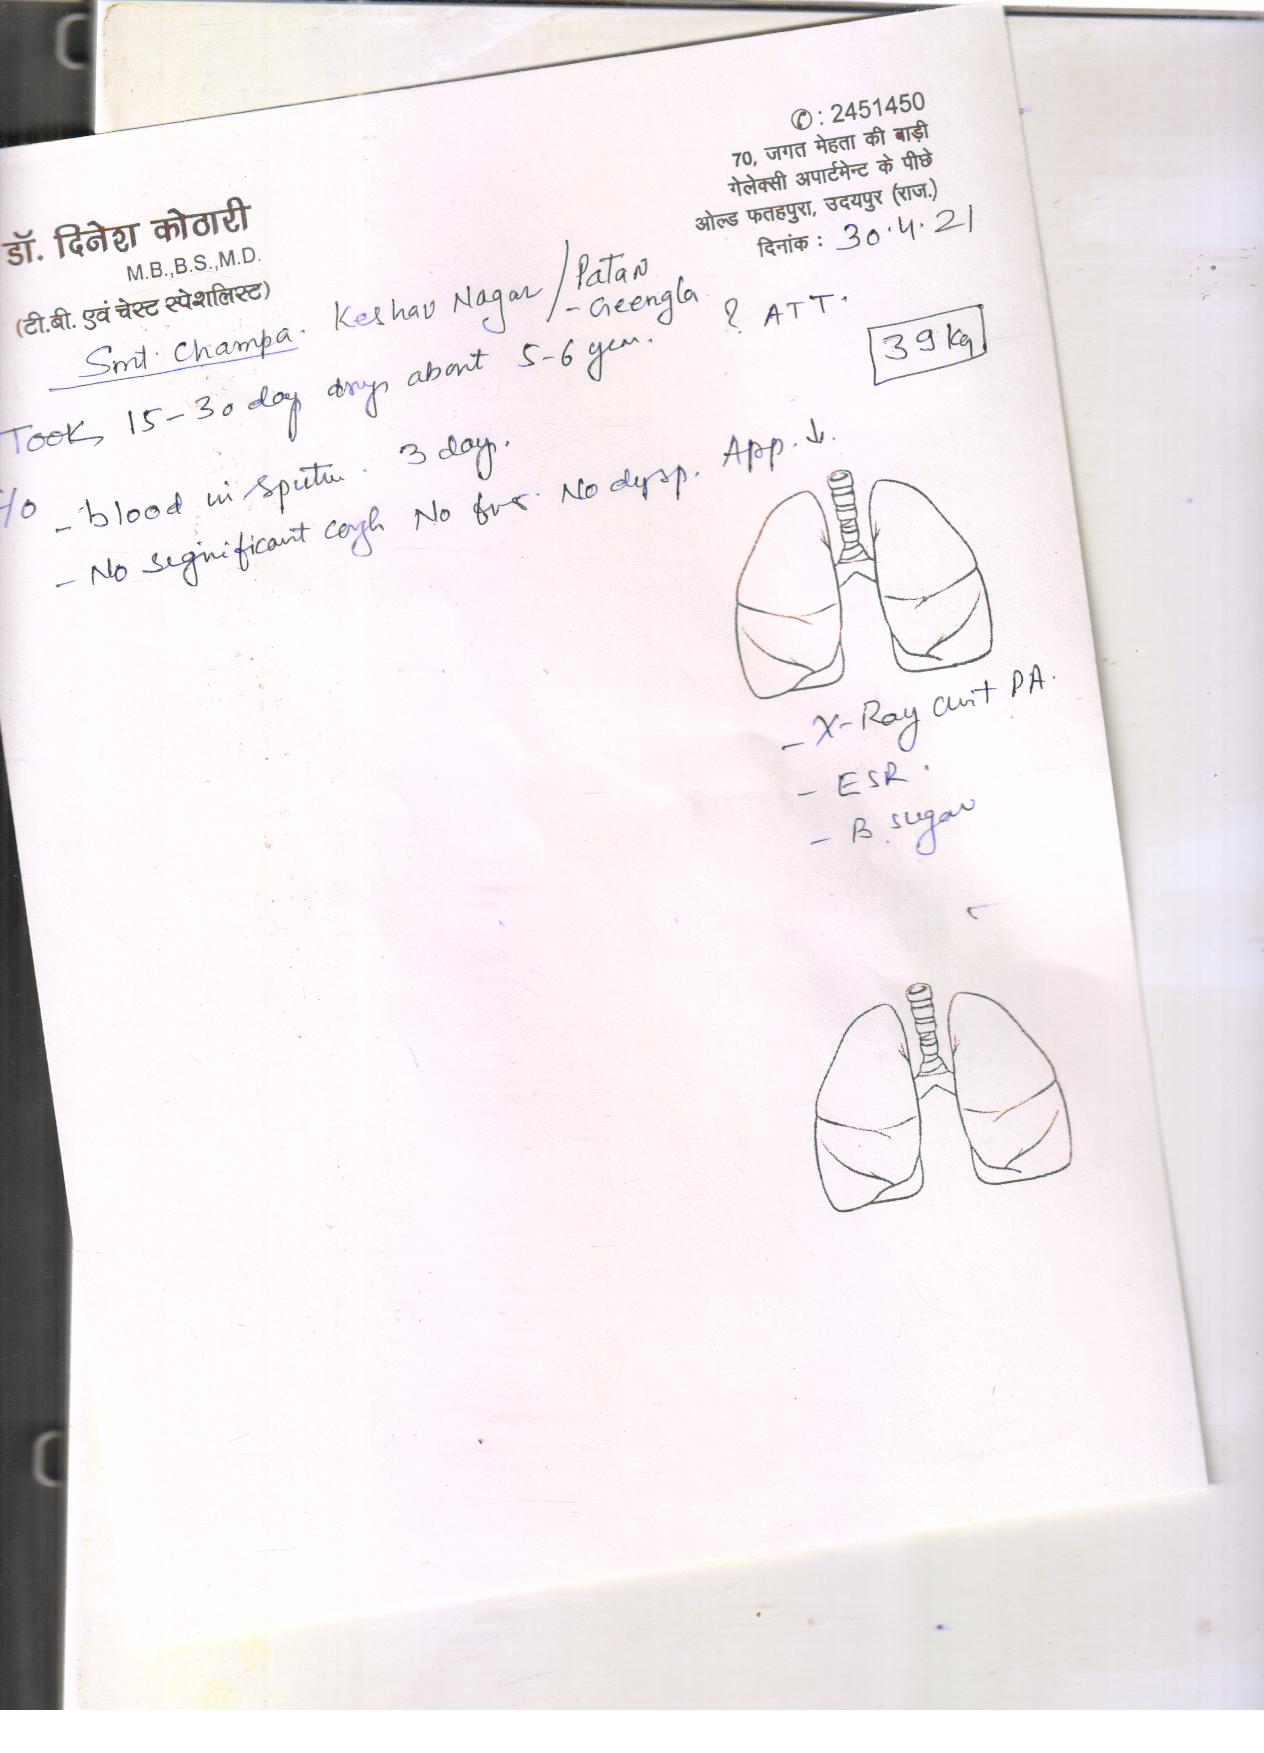 ✆: 2451450
70, जगत मेहता की बाड़ी
गेलेक्सी अपार्टमेन्ट के पीछे
ओल्ड फतहपुरा, उदयपुर (राज.)
दिनांक : 30.4.21
डॉ. दिनेश कोठारी
M.B.,B.S.,M.D.
(टी.बी. एवं चेस्ट स्पेशलिस्ट)
Smt. Champa. Keshav Nagar / Patan
- Geengla
39 kg
Took 15-30 day drugs about 5-6 year. ? ATT.
- blood in sputum. 3 day.
- No significant cough No fever. No dysp. App. ↓.
- X-Ray chest PA.
- ESR.
- B. sugar